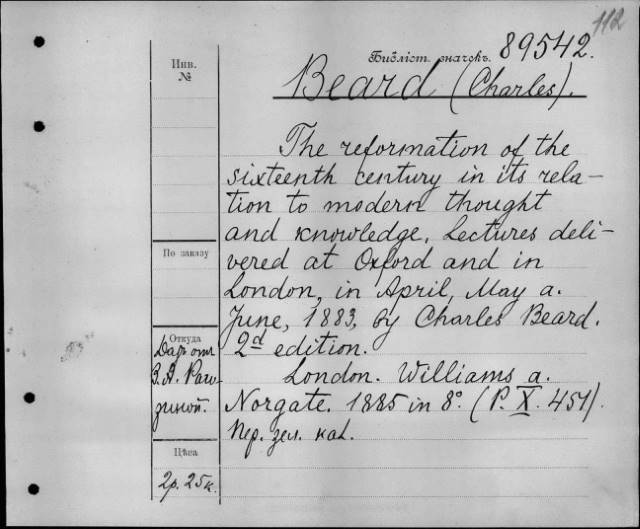 112
Библіот. значекъ. 89542.
Инв.
№
Beard (Charles).
The reformation of the
sixteenth century in its rela-
tion to modern thought
and knowledge. Lectures deli-
vered at Oxford and in
London, in April, May a.
June, 1883, by Charles Beard.
2d edition.
London. Williams a.
Norgate. 1885 in 8°. (P. X. 451).
Пер. зел. кал.
По заказу
Откуда
Даръ отъ
З. А. Раго-
зиной.
Цѣна
2р. 25к.